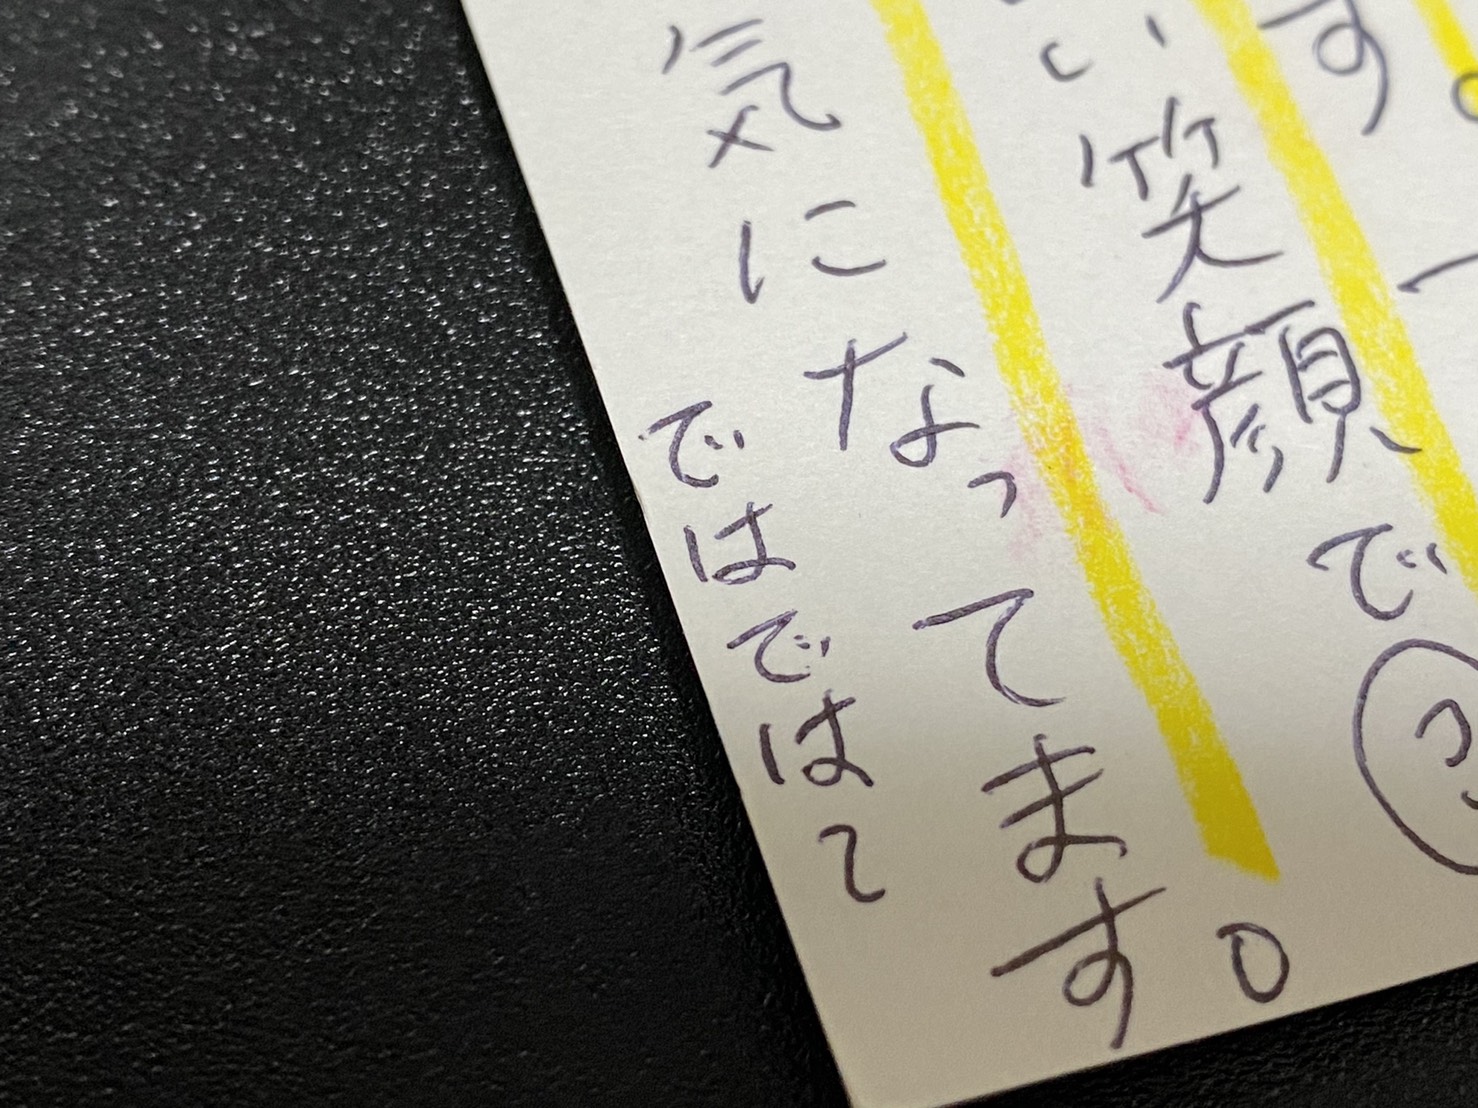 す。
い笑顔で
気になってます。
ではでは〜